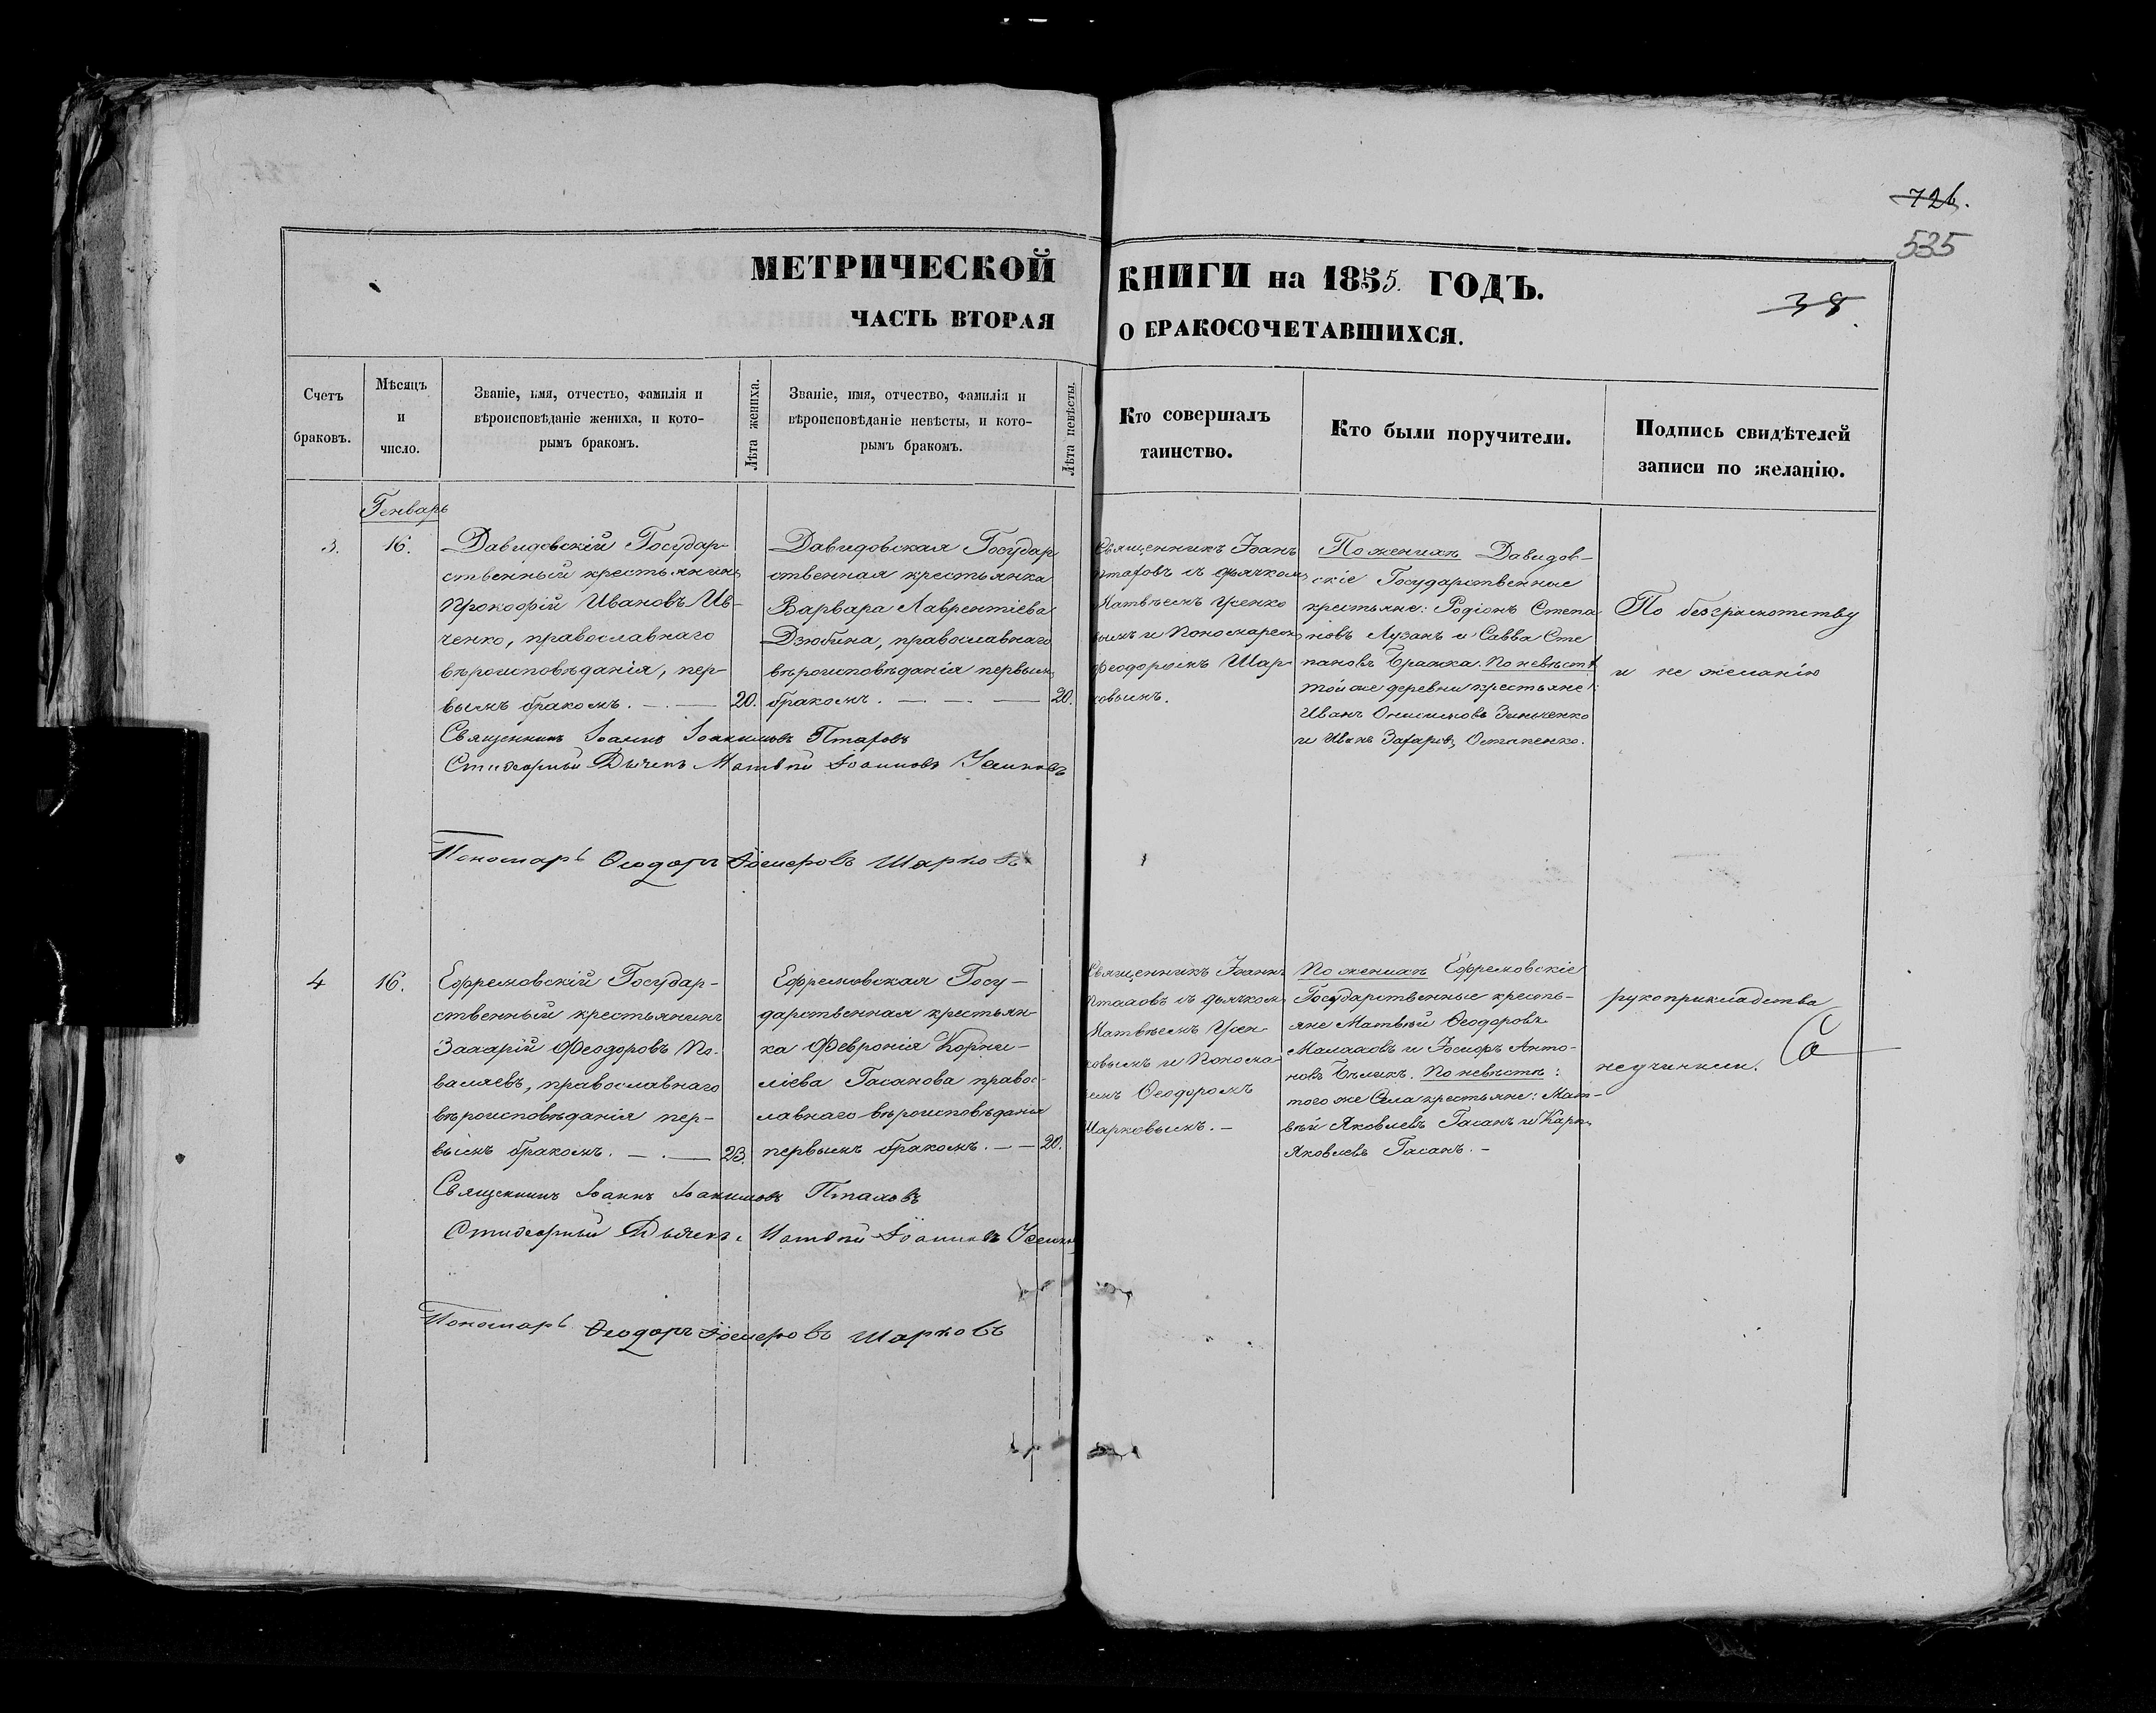 726.
535
38
МЕТРИЧЕСКОЙ КНИГИ на 1855. ГОДЪ.
ЧАСТЬ ВТОРАЯ О БРАКОСОЧЕТАВШИХСЯ.
Счетъ
браковъ.
Мѣсяцъ
и
число.
Званіе, имя, отчество, фамилія и
вѣроисповѣданіе жениха, и кото-
рымъ бракомъ.
Лѣта жениха.
Званіе, имя, отчество, фамилія и
вѣроисповѣданіе невѣсты, и кото-
рымъ бракомъ.
Лѣта невѣсты.
Кто совершалъ
таинство.
Кто были поручители.
Подпись свидѣтелей
записи по желанію.
Генварь
3.
16.
Давидовскій Государ-
ственный крестьянинъ
Прокофій Ивановъ Ив-
ченко, православнаго
вѣроисповѣданія, пер-
вымъ бракомъ.
20.
Давидовская Государ
ственная крестьянка
Варвара Лаврентіева
Дзюбина, православнаго
вѣроисповѣданія первымъ
бракомъ.
20.
Священникъ Іоаннъ
Птаховъ съ дьячкомъ
Матвѣемъ Усенко
вымъ и Пономаремъ
Феодоромъ Шар-
ковымъ.
По женихѣ Давидов-
скіе Государственные
крестьяне: Родіонъ Степа
новъ Лузанъ и Савва Сте
пановъ Бражка. По невѣстѣ
той же деревни крестьяне:
Иванъ Онисимовъ Зинченко
и Иванъ Захаровъ Остапенко.
По безграмотству
и не желанію
Священникъ Іоаннъ Іоакимовъ Птаховъ
Стихарный Дьячекъ Матвій Іоанновъ Усенковъ
Пономарь Ѳеодоръ Іосифовъ Шарковъ
4
16.
Ефремовскій Государ-
ственный крестьянинъ
Захарій Феодоровъ По-
валяевъ, православнаго
вѣроисповѣданія пер-
вымъ бракомъ.
23.
Ефремовская Госу-
дарственная крестьян-
ка Февронія Корни-
ліева Гасанова правос-
лавнаго вѣроисповѣданія
первымъ бракомъ.
20.
Священникъ Іоаннъ
Птаховъ съ дьячкомъ
Матвѣемъ Усен-
ковымъ и Понома
емъ Ѳеодоромъ
Шарковымъ.
По женихѣ Ефремовскіе
Государственные кресть-
яне Матвѣй Ѳеодоровъ
Малаховъ и Іосифъ Анто-
новъ Бѣликъ. По невѣстѣ:
того же Села крестьяне: Мат-
вѣй Яковлевъ Гасанъ и Карпъ
Яковлевъ Гасанъ.
рукоприкладства
неучинили.
Священникъ Іоаннъ Іоакимовъ Птаховъ
Стихарный Дьячекъ Матвій Іоанновъ Усенко
Пономарь Ѳеодоръ Іосифовъ Шарковъ